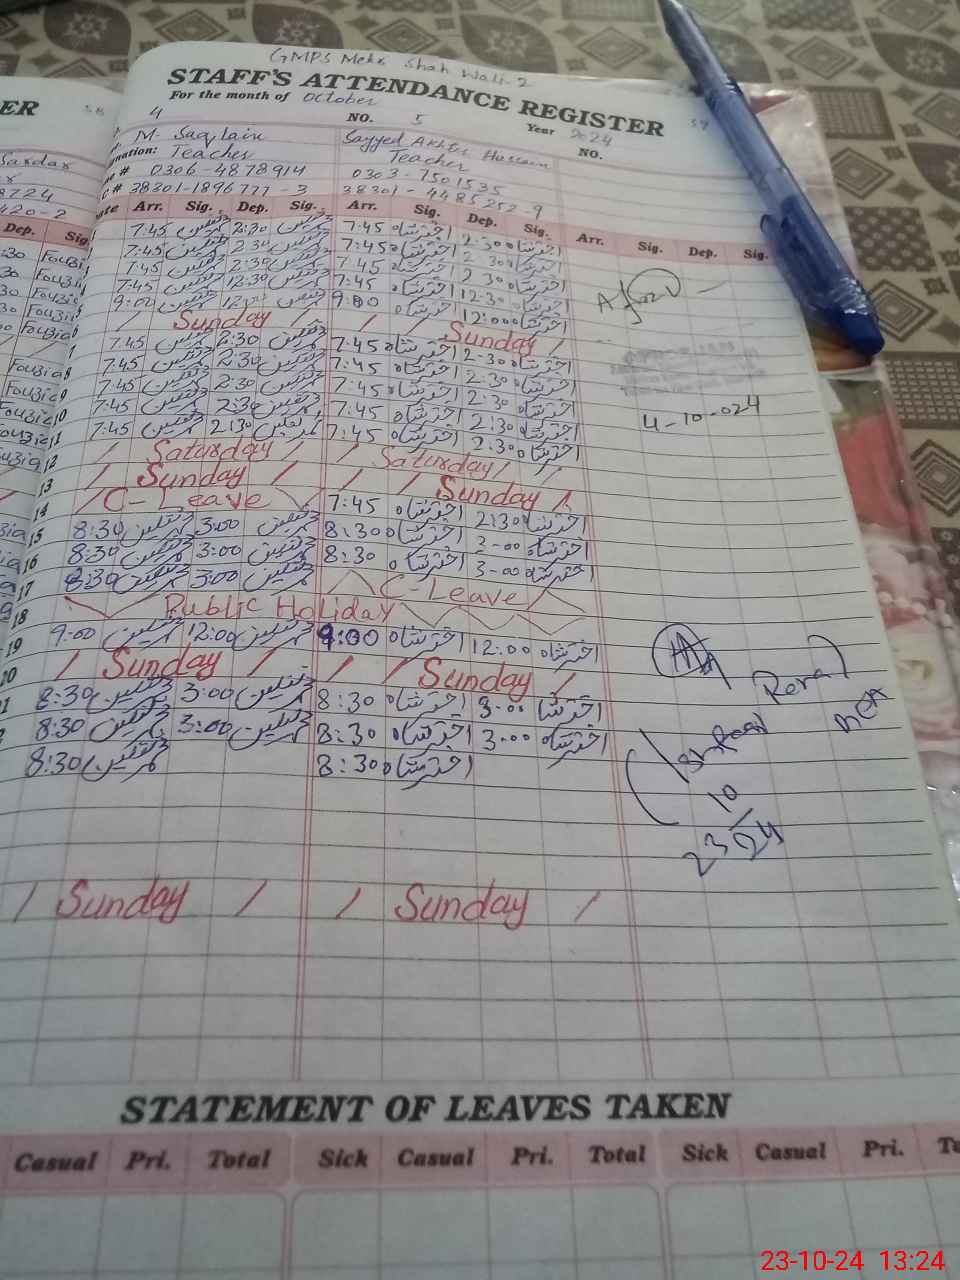 GMPS Meke Shah Wali-2
STAFF'S ATTENDANCE REGISTER
For the month of October Year 2024
4 NO. 5 NO.
M. Saqlain Sayyed Akhter Hussain
Designation: Teacher Teacher
0306-4878914 0303-7501535
38301-1896777-3 38301-4485252-9
Date Arr. Sig. Dep. Sig. Arr. Sig. Dep. Sig. Arr. Sig. Dep. Sig.
7:45 ثقلین 2:30 ثقلین 7:45 اخترشاہ 2:30 اخترشاہ
7:45 ثقلین 2:30 ثقلین 7:45 اخترشاہ 2:30 اخترشاہ
7:45 ثقلین 2:30 ثقلین 7:45 اخترشاہ 2:30 اخترشاہ
7:45 ثقلین 12:30 ثقلین 7:45 اخترشاہ 12:30 اخترشاہ
9:00 ثقلین 12:00 ثقلین 9:00 اخترشاہ 12:00 اخترشاہ
/ Sunday / / Sunday /
7:45 ثقلین 2:30 ثقلین 7:45 اخترشاہ 2:30 اخترشاہ
8 7:45 ثقلین 2:30 ثقلین 7:45 اخترشاہ 2:30 اخترشاہ
9 7:45 ثقلین 2:30 ثقلین 7:45 اخترشاہ 2:30 اخترشاہ
10 7:45 ثقلین 2:30 ثقلین 7:45 اخترشاہ 2:30 اخترشاہ
11 7:45 ثقلین 2:30 ثقلین 7:45 اخترشاہ 2:30 اخترشاہ
12 / Saturday / / Saturday /
13 / Sunday / / Sunday /
14 C-Leave 7:45 اخترشاہ 2:30 اخترشاہ
15 8:30 ثقلین 3:00 ثقلین 8:30 اخترشاہ 3-00 اخترشاہ
16 8:30 ثقلین 3:00 ثقلین 8:30 اخترشاہ 3-00 اخترشاہ
17 8:30 ثقلین 3:00 ثقلین C-Leave
18 Public Holiday
19 9:00 ثقلین 12:00 ثقلین 9:00 اخترشاہ 12:00 اخترشاہ
20 / Sunday / / Sunday /
8:30 ثقلین 3:00 ثقلین 8:30 اخترشاہ 3:00 اخترشاہ
8:30 ثقلین 3:00 ثقلین 8:30 اخترشاہ 3:00 اخترشاہ
8:30 ثقلین 8:30 اخترشاہ
/ Sunday / / Sunday /
4-10-024
23 10/24
STATEMENT OF LEAVES TAKEN
Casual Pri. Total Sick Casual Pri. Total Sick Casual Pri.
23-10-24 13:24